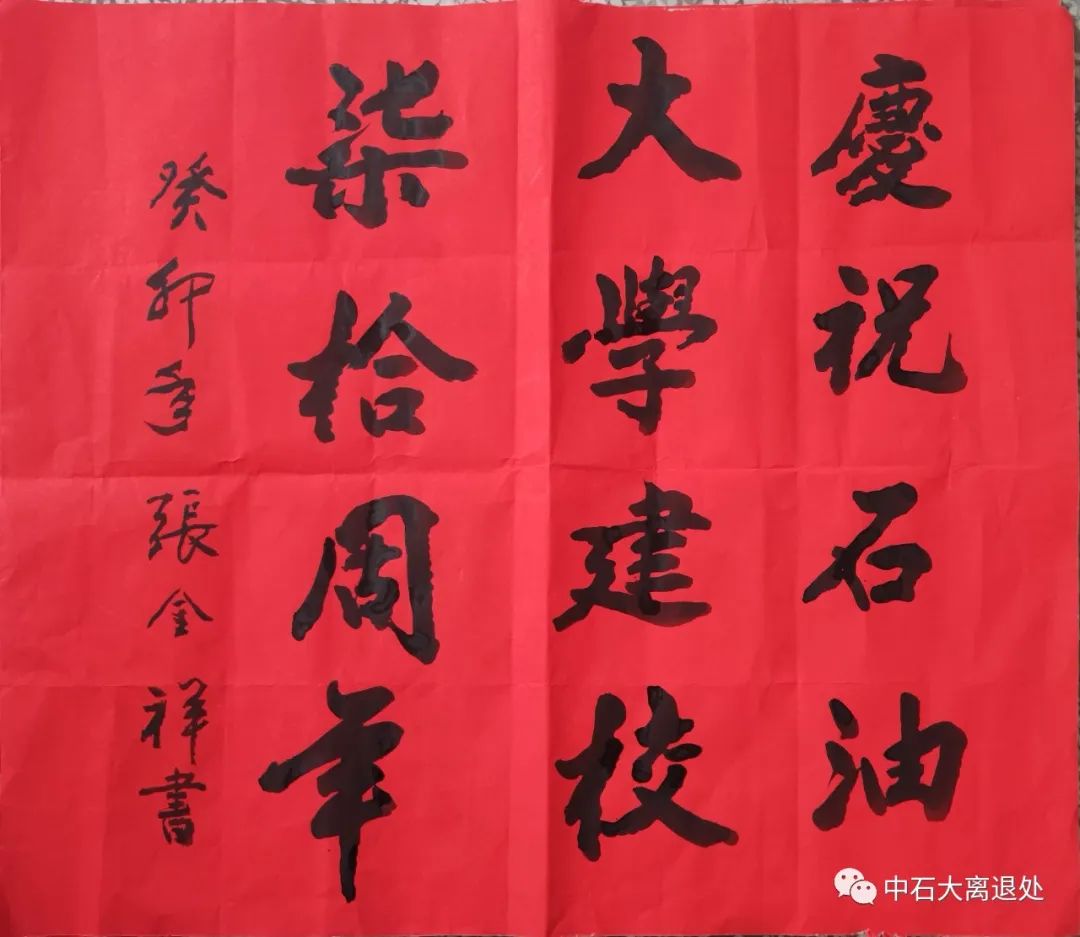 慶祝石油
大學建校
柒拾周年
癸卯年張金祥書
中石大离退处